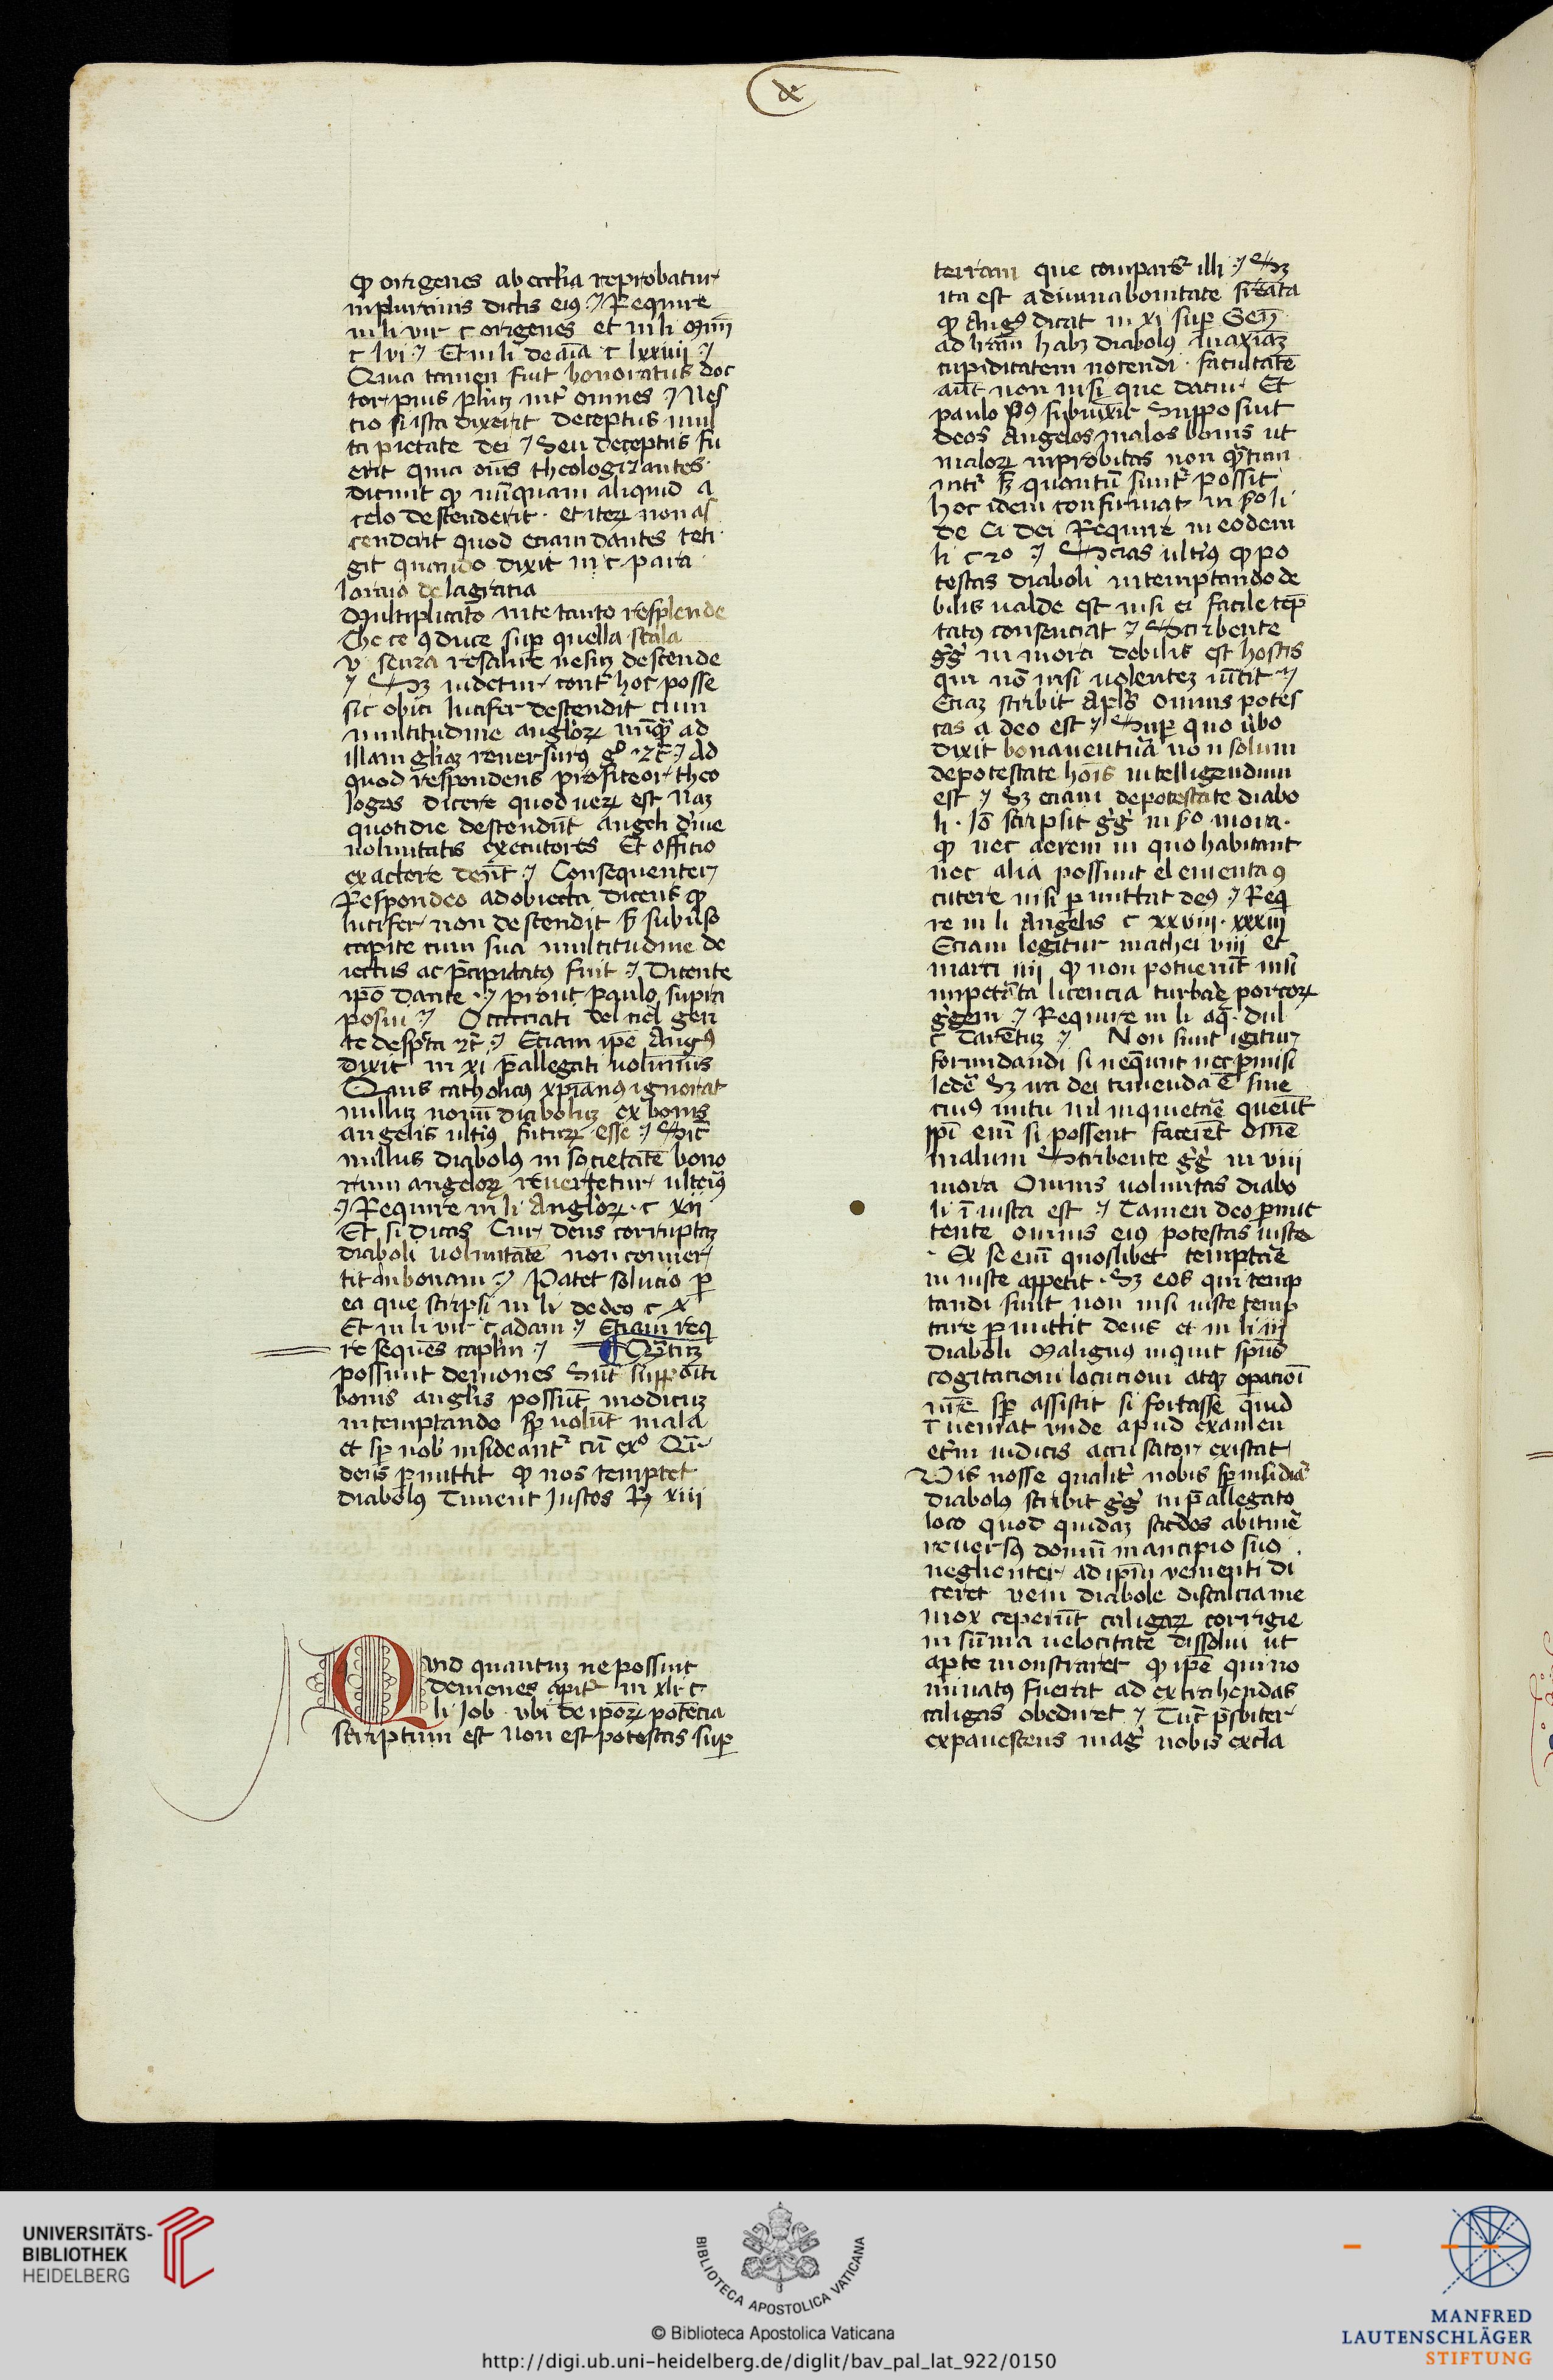 de
ꝙ origenes ab eccl'ia reprobatur
in plurimis dictis eius Require
in li vir c origenes et in li
c lvi Et in li de aīa c lxxiiii
Quia tamen fuit honoratus doc
tor pius omnes Nes
cio si ista dixerit deceptus mul
ta pietate dei Seu deceptus fu
erit quia oīns theologizantes
dicunt ꝙ nūnquam aliquid a
celo descenderit et iterꝝ non as
cenderit quod eciam dantes teti
git quando dixit in c para
lormo de la gratia
Multiplicato in te tanto resplende
Che te ꝯduce sup quella scala
v senza resalire nesuꝫ descende
Sꝫ uidetur cont' hoc posse
sic obici lucifer descendit cum
multitudine anglorꝝ nūqͣ ad
illam gliaꝫ reuersurꝰ gͦ ⁊c̄ Ad
quod respondens profiteor theo
logos dicere quod uerꝝ est Naꝫ
quotidie descendūt angeli diuīe
voluntatis executores Et officio
ex actore Consequenter
Respondeo ad obiecta dicens ꝙ
lucifer non descendit sꝫ subuīso
capite cum sua multitudine de
iectus ac p̄cipitatꝰ fuit Dicente
ip̄o dante prout paulo supra
posui O cacciati del ciel gen
te desp̄ta ⁊c̄ Eciam ip̄e Augꝰ
dixit in xi p̄allegati uolumīs
Quis catholicꝰ xp̄ianꝰ ignorat
nulluꝫ nouū diaboluꝫ ex bonis
angelis ultiꝰ futurꝝ esse Sic
nullus diabolꝰ in societatē bono
rum angelorꝝ reuertetur ulteriꝰ
Require in li Anglorꝝ c xii
Et si dicas Cur deus corruptaꝫ
diaboli uoluntatē non conuer
tit in bonam Patet solucio ꝑ
ea que scripsi in li de deo c x
Et in li vir c adam Eciam reqͥ
re sequēs caplm̄ Qͣntuꝫ
possunt demones Sūt suppositi
bonis anglis possūt modicuꝫ
in temptando sꝑ uolūt mala
et sꝑ nob insideant' cū
deus ꝑmittit ꝙ nos temptet
diabolꝰ Timent Justos xiii
Quid quantuꝫ ne possint
demones apit' in xli c
li Job ubi de ip̄orꝝ potēcia
scriptum est Non est potestas suꝑ
terram que compar' illi Sꝫ
ita est a diuina bonitate
ꝙ Augꝰ dicat in xi suꝑ Gen̄
ad lram̄ habꝫ diabolꝰ maxiāꝫ
cupiditatem nocendi facultatē
aūt non nisi que datur Et
paulo subiūxit Supposuit
deos Angelos malos bonis ut
malorꝝ inprobitas non qͣntum
nitit' sꝫ quantū sinit' possit
hoc idem confirmat in li
de Ci dei Require in eodem
li c 20 Scias ultiꝰ ꝙ po
testas diaboli in temptando de
bilis ualde est nisi ei facile tēp
tatꝰ consenciat Scribente
gͦgͦ in mora debilis est hostis
qui nō nisi uolenteꝫ uīcit
Eciaꝫ scribit apl's Omnis potes
tas a deo est Suꝑ quo ūbo
dixit bonauentūa non solum
de potestate hoīs intelligendum
est Sꝫ eciam de potestate diabo
li Iō scripsit gͦgͦ in mora
ꝙ nec aerem in quo habitant
nec alia possunt elementa ꝯ
cutere nisi ꝑmittat deꝰ Reqͥ
re in li Angelis c xxviii xxxiii
Eciam legitur mathei viii et
marci iiii ꝙ non potuerūt nisi
impetrāta licencia turbare porcorꝝ
gͥgem Require in li aq̄ dul
c Tarētuꝫ Non sunt igitur
formidandi si neqͣunt nec ꝑ nisi
ledē Sꝫ ira dei timenda ē sine
cuiꝰ nutu nil inquietare queūt
ipī enī si possent facerēt om̄e
malum Scribente gͦgͦ in viii
mora Omnis uoluntas diabo
li īiusta est Tamen deo ꝑmit
tente omnis eiꝰ potestas iusta
Ex se enī quoslibet temptare
in iuste appetit Sꝫ eos qui temp
tandi sunt non nisi iuste temp
tare ꝑmittit deus et in li iii
Diaboli Malignꝰ inquit spūs
cogitacioni locucioni atqꝫ oꝑacioī
nrē sꝑ assistit si fortasse qͥuid
ī ueniat unde apud examen
et'ni iudicis accusator existat
Vis nosse qualit' nobis sꝑ insidia'
diabolus scribit gͦgͦ in p̄allegato
loco quod quidaꝫ sac'dos ab itine'
reuersꝰ domū mancipio suo
neglienter ad ip̄m uenienti di
ceret veni diabole discalcia me
mox ceperūt caligarꝝ corrigie
in sūma uelocitate dissolui ut
aꝑte monstraret ꝙ ip̄e qui no
minatꝰ fuerat ad extrahendas
caligas obediret Tūc p̄sbiter
expauescens mag' uobis excla
UNIVERSITÄTS-
BIBLIOTHEK
HEIDELBERG
BIBLIOTECA APOSTOLICA VATICANA
© Biblioteca Apostolica Vaticana
http://digi.ub.uni-heidelberg.de/diglit/bav_pal_lat_922/0150
MANFRED
LAUTENSCHLÄGER
STIFTUNG